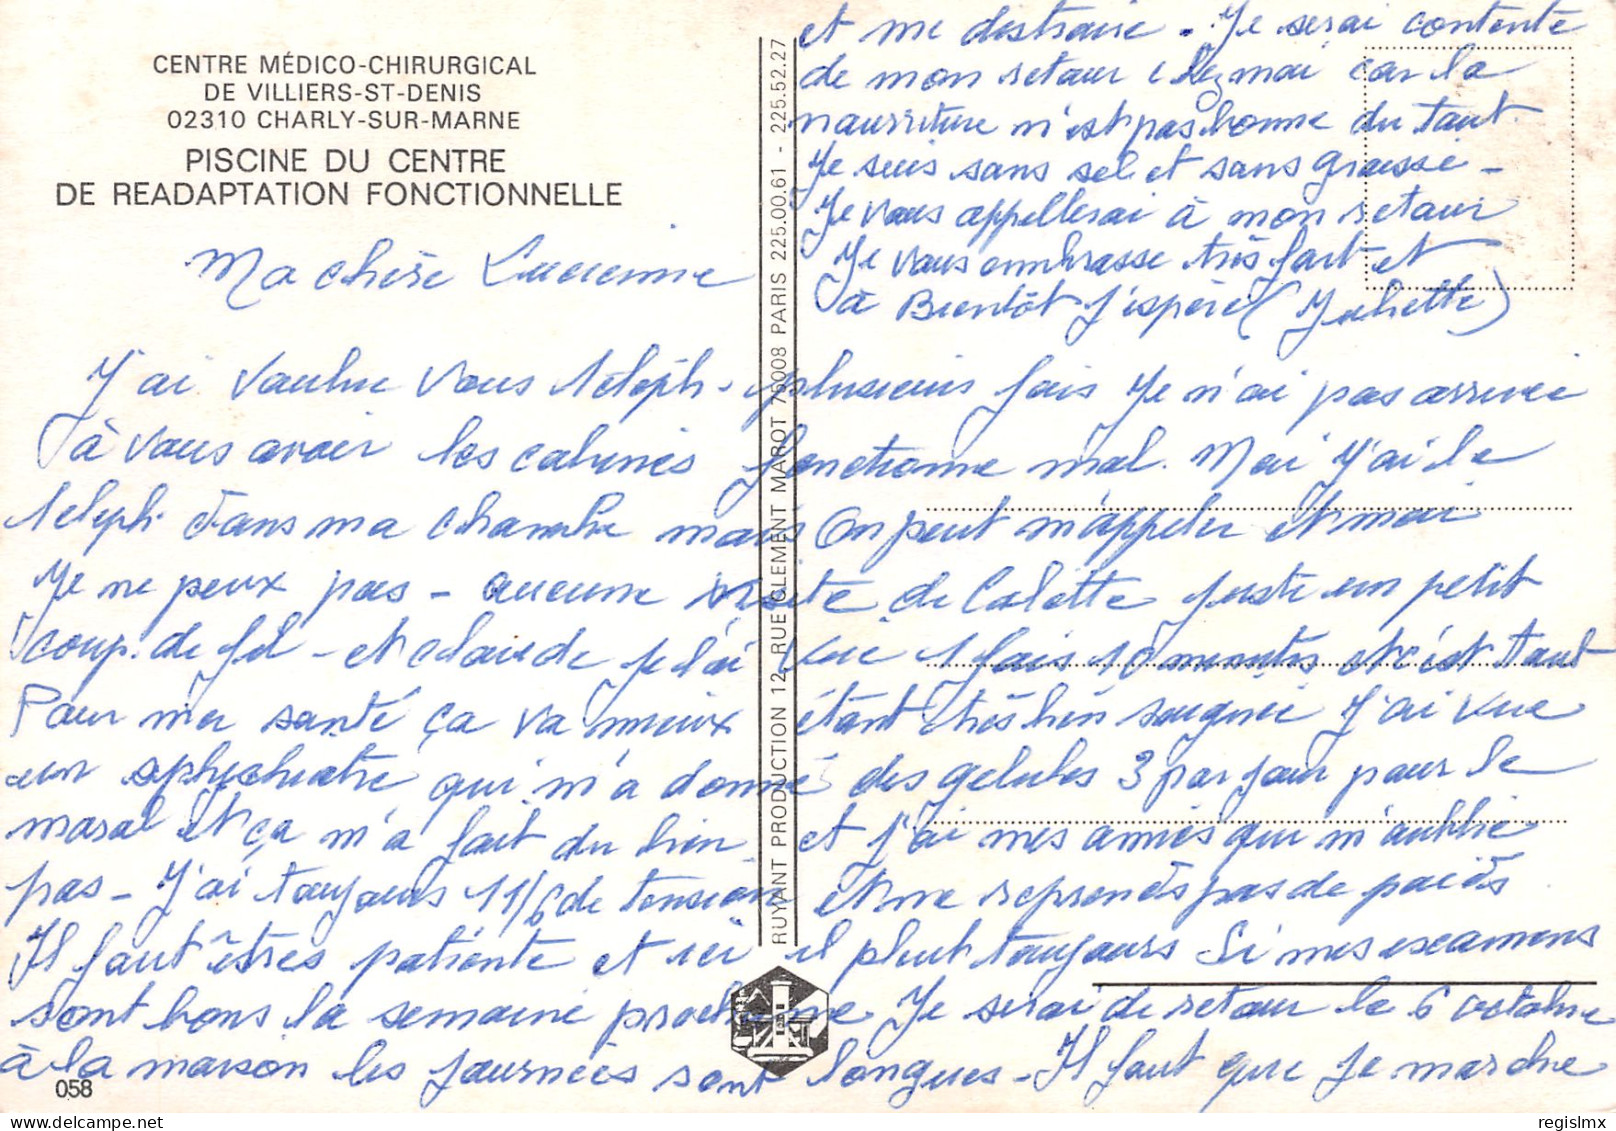 CENTRE MÉDICO-CHIRURGICAL
DE VILLIERS-ST-DENIS
02310 CHARLY-SUR-MARNE
PISCINE DU CENTRE
DE READAPTATION FONCTIONNELLE
Ma chère Lucienne
J'ai voulue vous téléph. plusieurs fois Je n'ai pas arrivée
à vous avoir les cabines fonctionne mal. Moi j'ai le
teleph. dans ma chambre mais on peut m'appeler et moi
Je ne peux pas - aucune visite de Colette juste un petit
coup. de fil - et claude je l'ai vue 1 fois 10 minutes et c'est tout
Pour ma santé ça va mieux étant très bien soignée J'ai vue
un sphychiatre qui m'a donné des gelules 3 par jour pour le
moral et ça m'a fait du bien. et j'ai mes amies qui m'oublie
pas - J'ai toujours 11/6 de tension et ne reprends pas de poids
Il faut êtres patiente et ici il pleut toujours Si mes examens
sont bons la semaine prochaine Je serai de retour le 6 octobre
à la maison les journées sont longues - Il faut que je marche
et me distraire - Je serai contente
de mon retour chez moi car la
nourriture n'est pas bonne du tout.
Je suis sans sel et sans graisse -
Je vous appellerai à mon retour
Je vous embrasse très fort et
à Bientôt j'espère (Juliette)
RUYANT PRODUCTION 12, RUE CLEMENT MAROT 75008 PARIS 225.00.61 - 225.52.27
058
regislmx